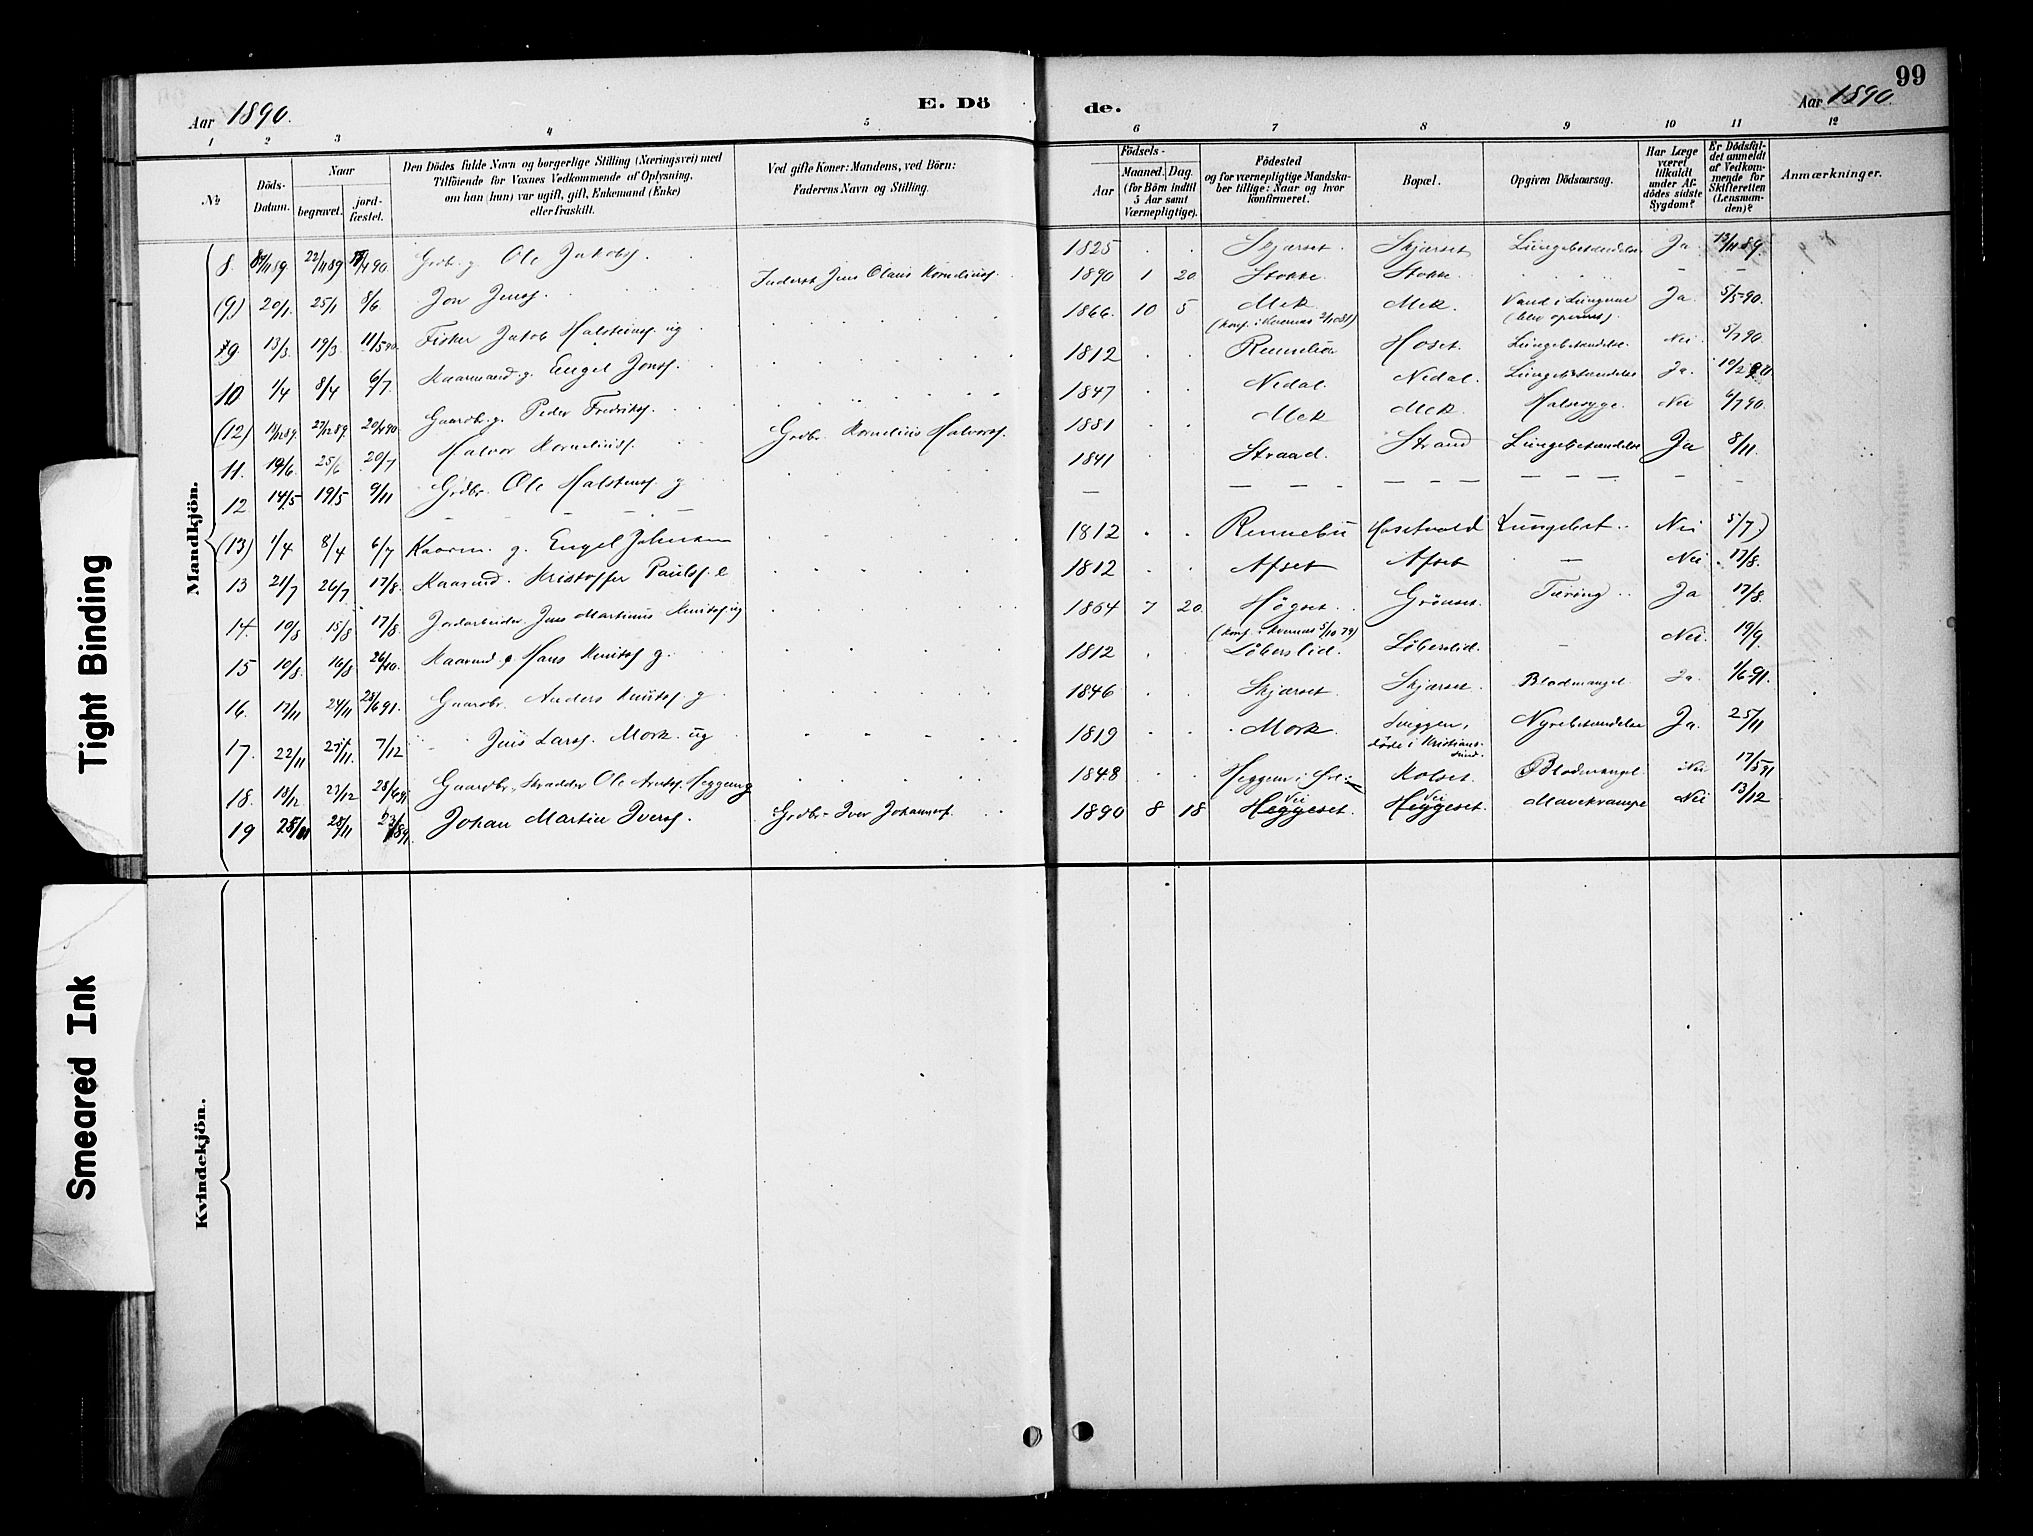 99
Aar 1890.
E. Dö
de.
Aar 1890.
1 2 3 4 5 6 7 8 9 10 11 12
№
Döds-
Datum.
Naar
begravet.
jord-
fæstet.
Den Dödes fulde Navn og borgerlige Stilling (Næringsvei) med
Tilföiende for Voxnes Vedkommende af Oplysning,
om han (hun) var ugift, gift, Enkemand (Enke)
eller fraskilt.
Ved gifte Koner: Mandens, ved Börn:
Faderens Navn og Stilling.
Födsels-
Aar
Maaned. Dag.
(for Börn indtil
5 Aar samt
Værnepligtige).
Födested
og for værnepligtige Mandska-
ber tillige: Naar og hvor
konfirmeret.
Bopæl.
Opgiven Dödsaarsag.
Har Læge
været
tilkaldt
under Af-
dödes sidste
Sygdom?
Er Dödsfal-
det anmeldt
af Vedkom-
mende for
Skifteretten
(Lensman-
den)?
Anmærkninger.
Mandkjön.
8. 22/11 89 Grdbr. g. Ole Jakobs. 1825 Skjærset. Skjærset Lungebetændelse Ja 13/11 89.
(9.) 20/1. 25/1 8/6 Jon Jenss. Inderst Jens Olaus Kornelius. 1890 1 20 Stokke. Stokke. - -
9. 13/3. 19/3. 11/5 90. Fisker Jakob Halsteins. ug 1866. 10 5 Mek Mek. Vand i Lungerne Ja 5/5 90.
(konf. i Kvernæs 2/10 81) (blev opereret).
10 1/4 8/4 6/7 Kaarmand g. Engel Jons. 1812 Rennebu Hoset. Lungebetændelse. Nei 5/7 90.
(12) 27/12 89. 20/4 90 Gaardbr. g. Peder Fredriks. 1847 Nedal. Nedal. Lungebetændelse Ja. 10/2 90
11. 19/6. 25/6 20/7 Halvor Kornelius. Grdbr. Kornelius Halvors. 1881 Mek Mek. Halssyge. Nei 6/7 90.
12 14/5 19/5 9/11 Grdbr. Ole Halsteins. g 1841 Strand. Strand Lungebetændelse Ja 8/11.
(13) 1/4 8/4 6/7 Kaarm. g. Engel Johnsen 1812 Rennebu Hosetvold Lungebet. Nei 5/7)
13 21/7 26/7 17/8. Kaarmd. Kristoffer Pauls. e 1812 Afset Afset — Nei 17/8.
14. 10/8 15/8 17/8. Jordarbeider Jens Martinus Knuts. ug 1864 7 20. Høgset. Grönset. Tæring. Ja 17/8.
(konf. i Kvernæs 5/10 79)
15 10/8. 16/8 26/10. Kaarmd. Hans Knuts. g. 1812 Löberslid. Löberslid. — Nei. 19/9.
16. 17/11 24/11 28/6 91. Gaardbr. Anders Knuts. g 1846 Skjærset. Skjærset. Blodmangel Ja. 1/6 91.
17. 22/11 25/11. 7/12 Jens Lars. Mork ug 1819 Mork. Sveggen, Nyrebetændelse Ja. 25/11
döde i Kristians-
sund.
18. 18/12 23/12 28/6 91 Gaardbr. Skrædder Ole Arnts. Heggem g 1848 Heggem i Öre Kolset. Blodmangel. Nei 17/5 91
19 28/11 Johan Martin Ivers. Grdbr. Iver Johannes. 1890 8 18 Heggeset. Heggeset. Mavekrampe Nei 13/12
Vei Vei
Kvindekjön.
Tight Binding
Smeared Ink